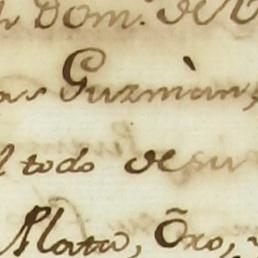 Dom.º de
Guzmàn,
todo de su
Plata, Õro,